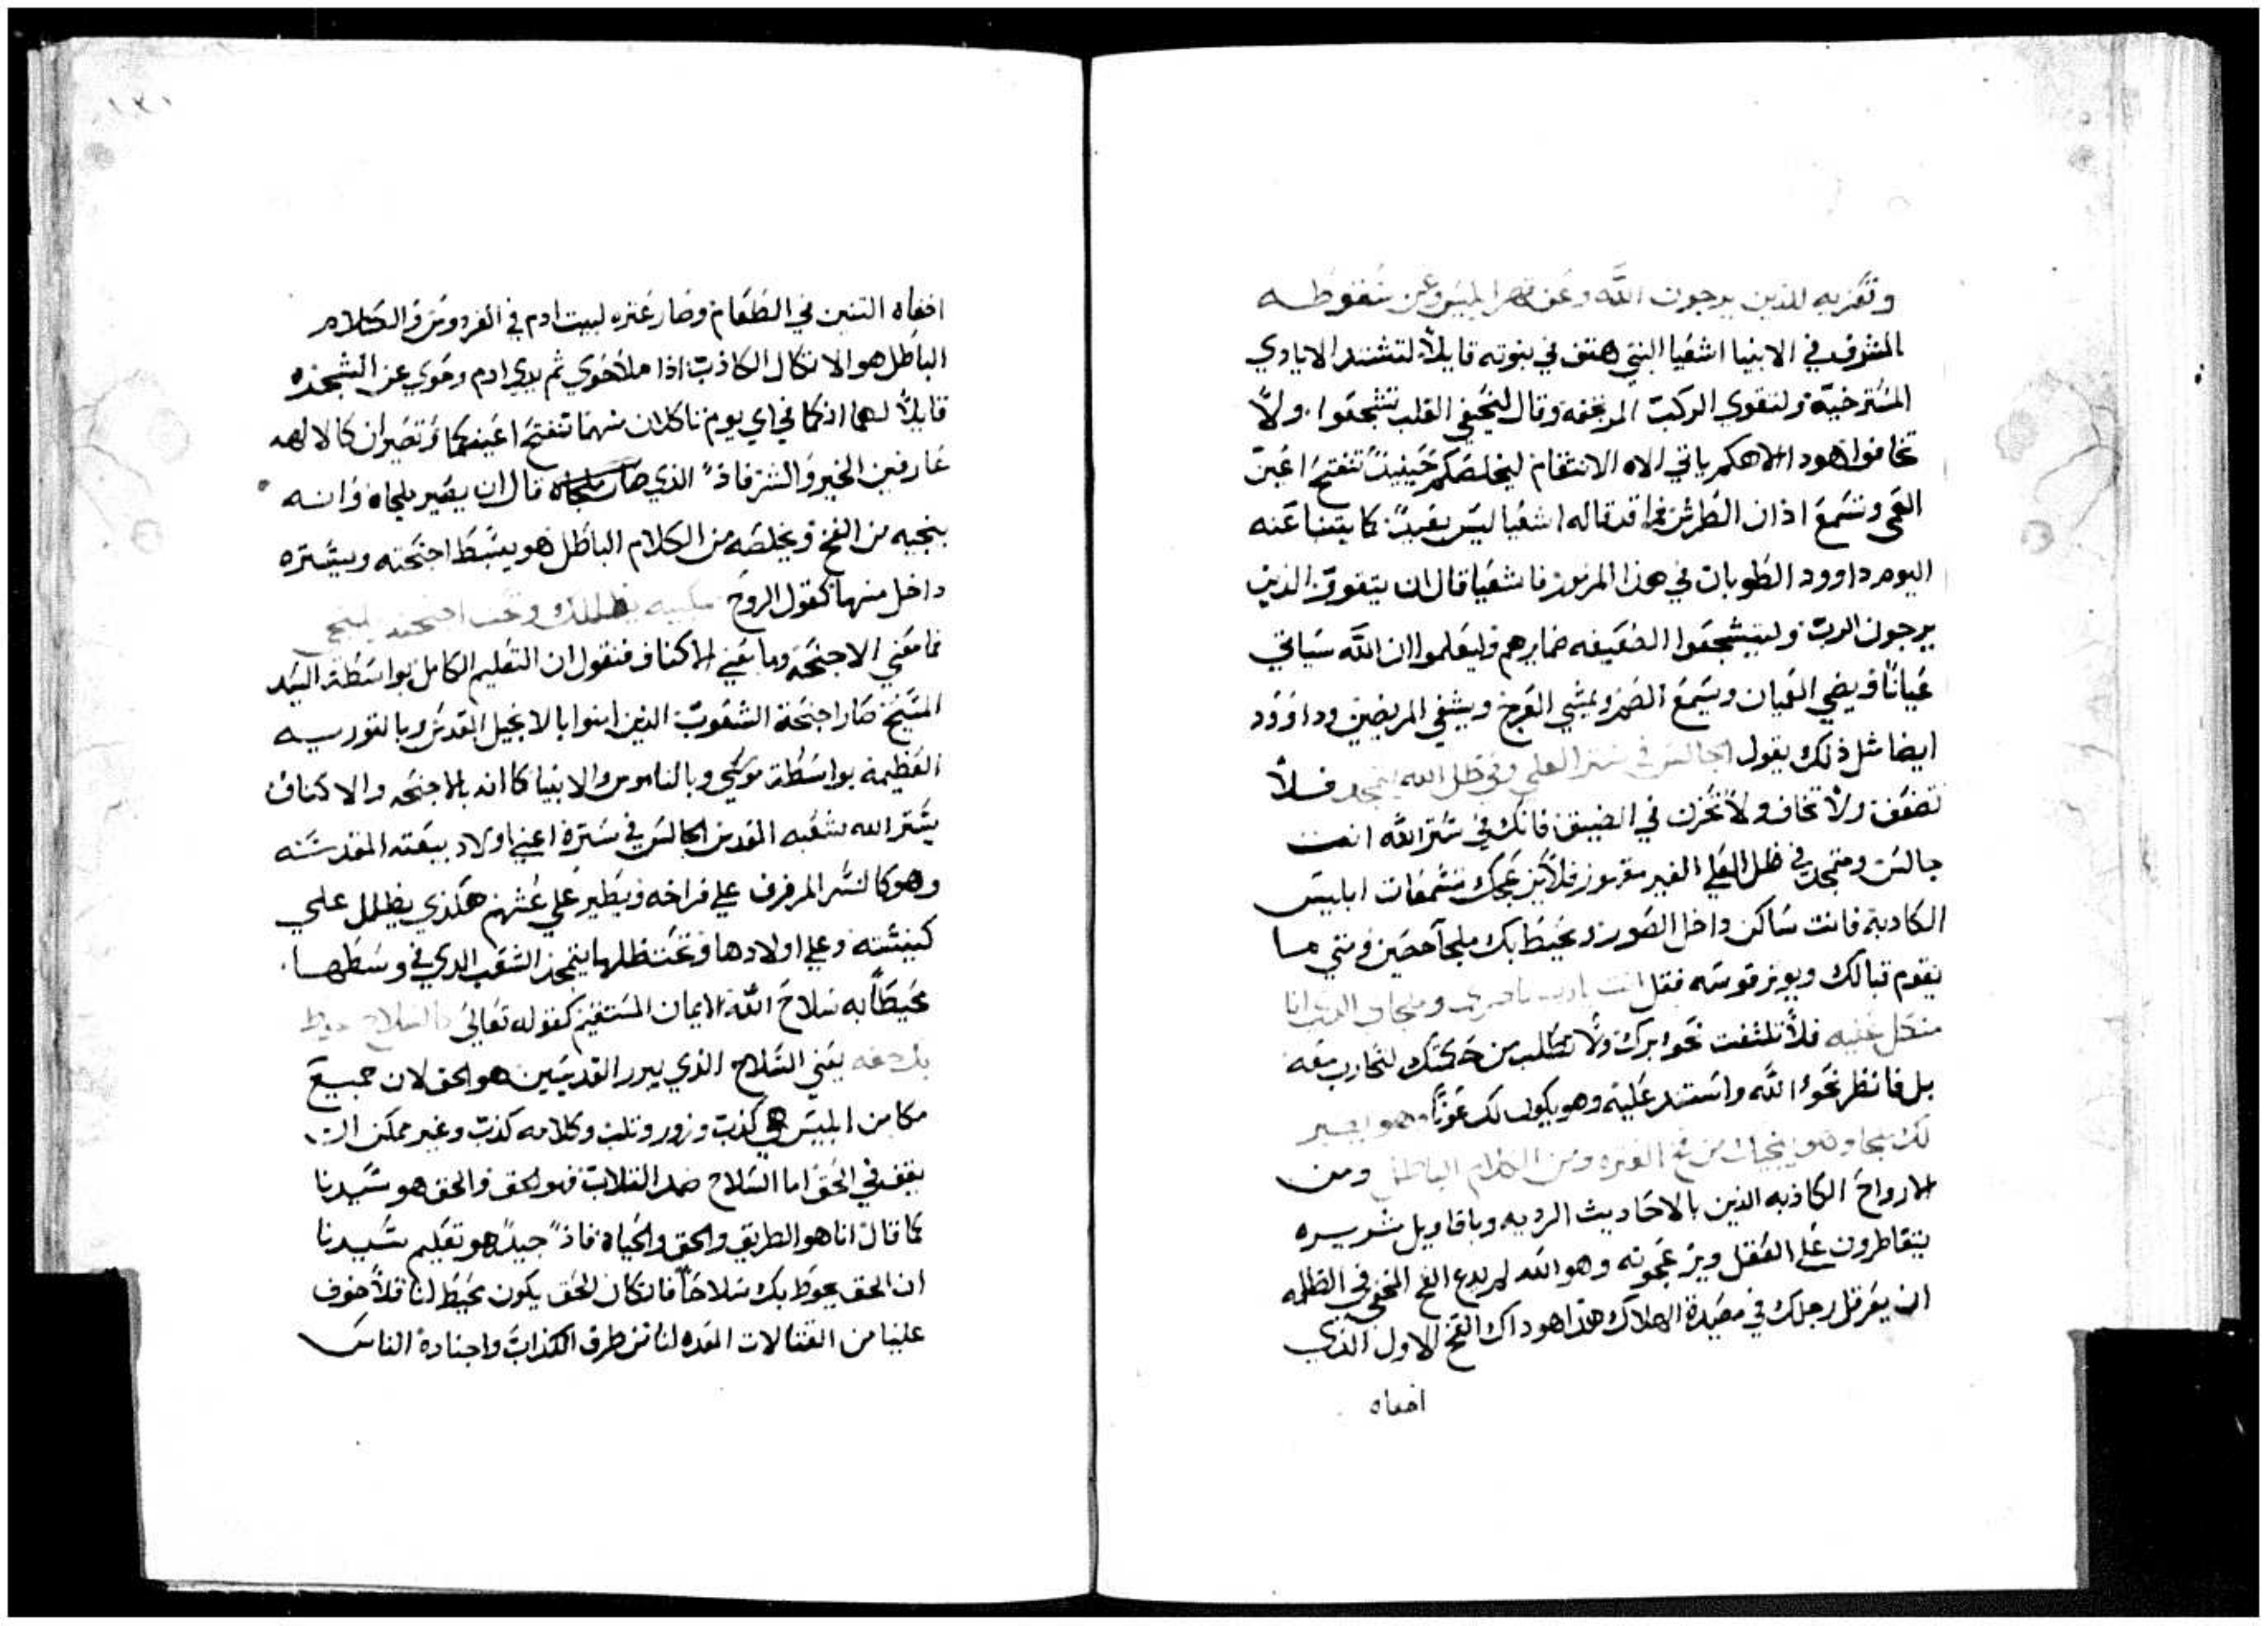 وتعزيه للذين يرجون الله وعن قهر ابليس وعن سقوطه
المشرف في الانبيا اشعيا النبي هتف في نبوته قايلاً لتشتد الايادي
المسترخية ولتقوي الركب المرتجفه وقال لنحيفي القلب تشجعوا ولا
تخافوا هودا الاهكم ياتي الاه الانتقام ليخلصكم حينيذٍ تنفتح اعين
العمي وتسمع اذان الطرش فما قد قاله اشعيا ليس بعيدٍ كما يتنبا عنه
اليوم داوود الطوبان في هذا المزمور فاشعيا قال ان يتقوي الذين
يرجون الرب وليتشجعوا الضعيفه ضمايرهم وليعلموا ان الله سياتي
عياناً ويضي العميان ويسمع الصم ويمشي العرج ويشفي المريضين وداوود
ايضا مثل ذلك يقول الجالس في ستر العلي وفي ظل الله يتمجد فلا
تضعف ولا تخاف ولا تحزن في الضيق فانك في ستر الله انت
جالس ومتمجد في ظل العلي الغير مقهور فلا يزعجك تشمعات ابليس
الكادبة فانت ساكن داخل الصور ويحيط بك ملجأ حصين ومتي ما
يقوم قبالك ويوتر قوسه فقل انت يارب ناصري وملجاي الذي انا
متكل عليه فلا تلتفت نحو ابرك ولا تطلب من حكمتك لتحارب معه
بل فانظر نحو الله واستند عليه وهو يكون لك عوناً وهو يصير
لك ملجا وهو ينجيك من فخ العثره ومن الكلام الباطل ومن
الارواح الكاذبه الذين بالاحاديث الرديه وباقاويل شريره
يتقاطرون علي العقل ويزعجونه وهو الله لم يدع الفخ المخفي في الظلمه
ان يعرقل رجلك في مصيدة الهلاك هذا هو داك الفخ الاول الذي
اخفاه
اخفاه التنين في الطعام وصار عثره لبيت ادم في الفردوس والكلام
الباطل هو الاتكال الكاذب اذا ملا حوي ثم يدي ادم وحوي عن الشجره
قايلاً لهما انكما في اي يوم تاكلان منهما تنفتح اعينكما وتصيران كالالهه
عارفين الخير والشر فاذاً الذي صار ملجاه قال ان يصير ملجاه وانه
ينجيه من الفخ ويخلصه من الكلام الباطل هو يبسط اجنحته ويستره
داخل منها كقول الروح منكبيه يظللك وتحت اجنحته يلتجي
فما معني الاجنحة وما يعني الاكناف فنقول ان التعليم الكامل بواسطة السيد
المسيح صار اجنحة الشعوب الذين امنوا بالانجيل المقدس وبالتوريه
العظيمة بواسطة موسي وبالناموس والانبيا كما انه بالاجنحه والاكناف
يستر الله شعبه المقدس الجالس في ستره اعني اولاد بيعته المقدسه
وهو كالنسر المرفرف علي فراخه ويطير علي عشهم هكذي يظلل علي
كنيسته وعلي اولادها وتحت ظلها يتمجد الشعب الدي في وسطها
محيطاً به سلاح الله الايمان المستقيم كقوله تعالي بالسلاح يحوط
بك حقه يعني السلاح الذي يبرر القديسين هو الحق لان جميع
مكامن ابليس هي كذب وزور وتلب وكلامه كذب وغير ممكن ان
يقف في الحق اما السلاح ضد الثلاب فهو الحق والحق هو سيدنا
كما قال انا هو الطريق والحق والحياه فاذاً جيداً هو تعليم سيدنا
ان الحق يحوط بك سلاحاً فان كان الحق يكون يحيط لنا فلا خوف
علينا من القتالات المعده لنا من طرف الكذاب واجناده الناس